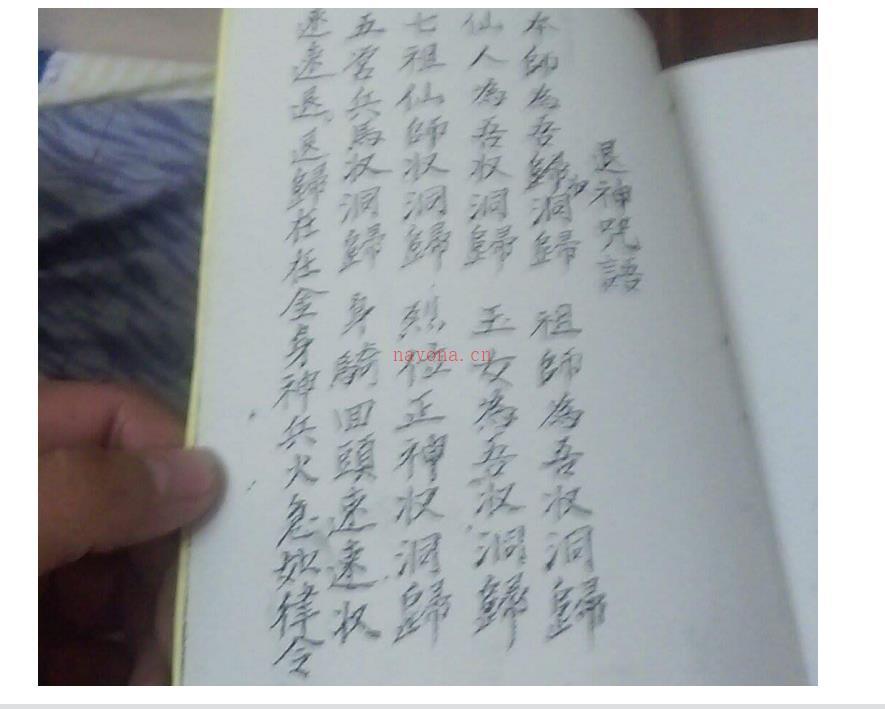 退神咒語
本師為吾歸収洞歸 祖師為吾収洞歸
仙人為吾収洞歸 玉女為吾収洞歸
七祖仙師収洞歸 烈位正神収洞歸
五営兵馬収洞歸 身騎回頭速速収
速速退退歸在在金身神兵火急如律令
nayona.cn